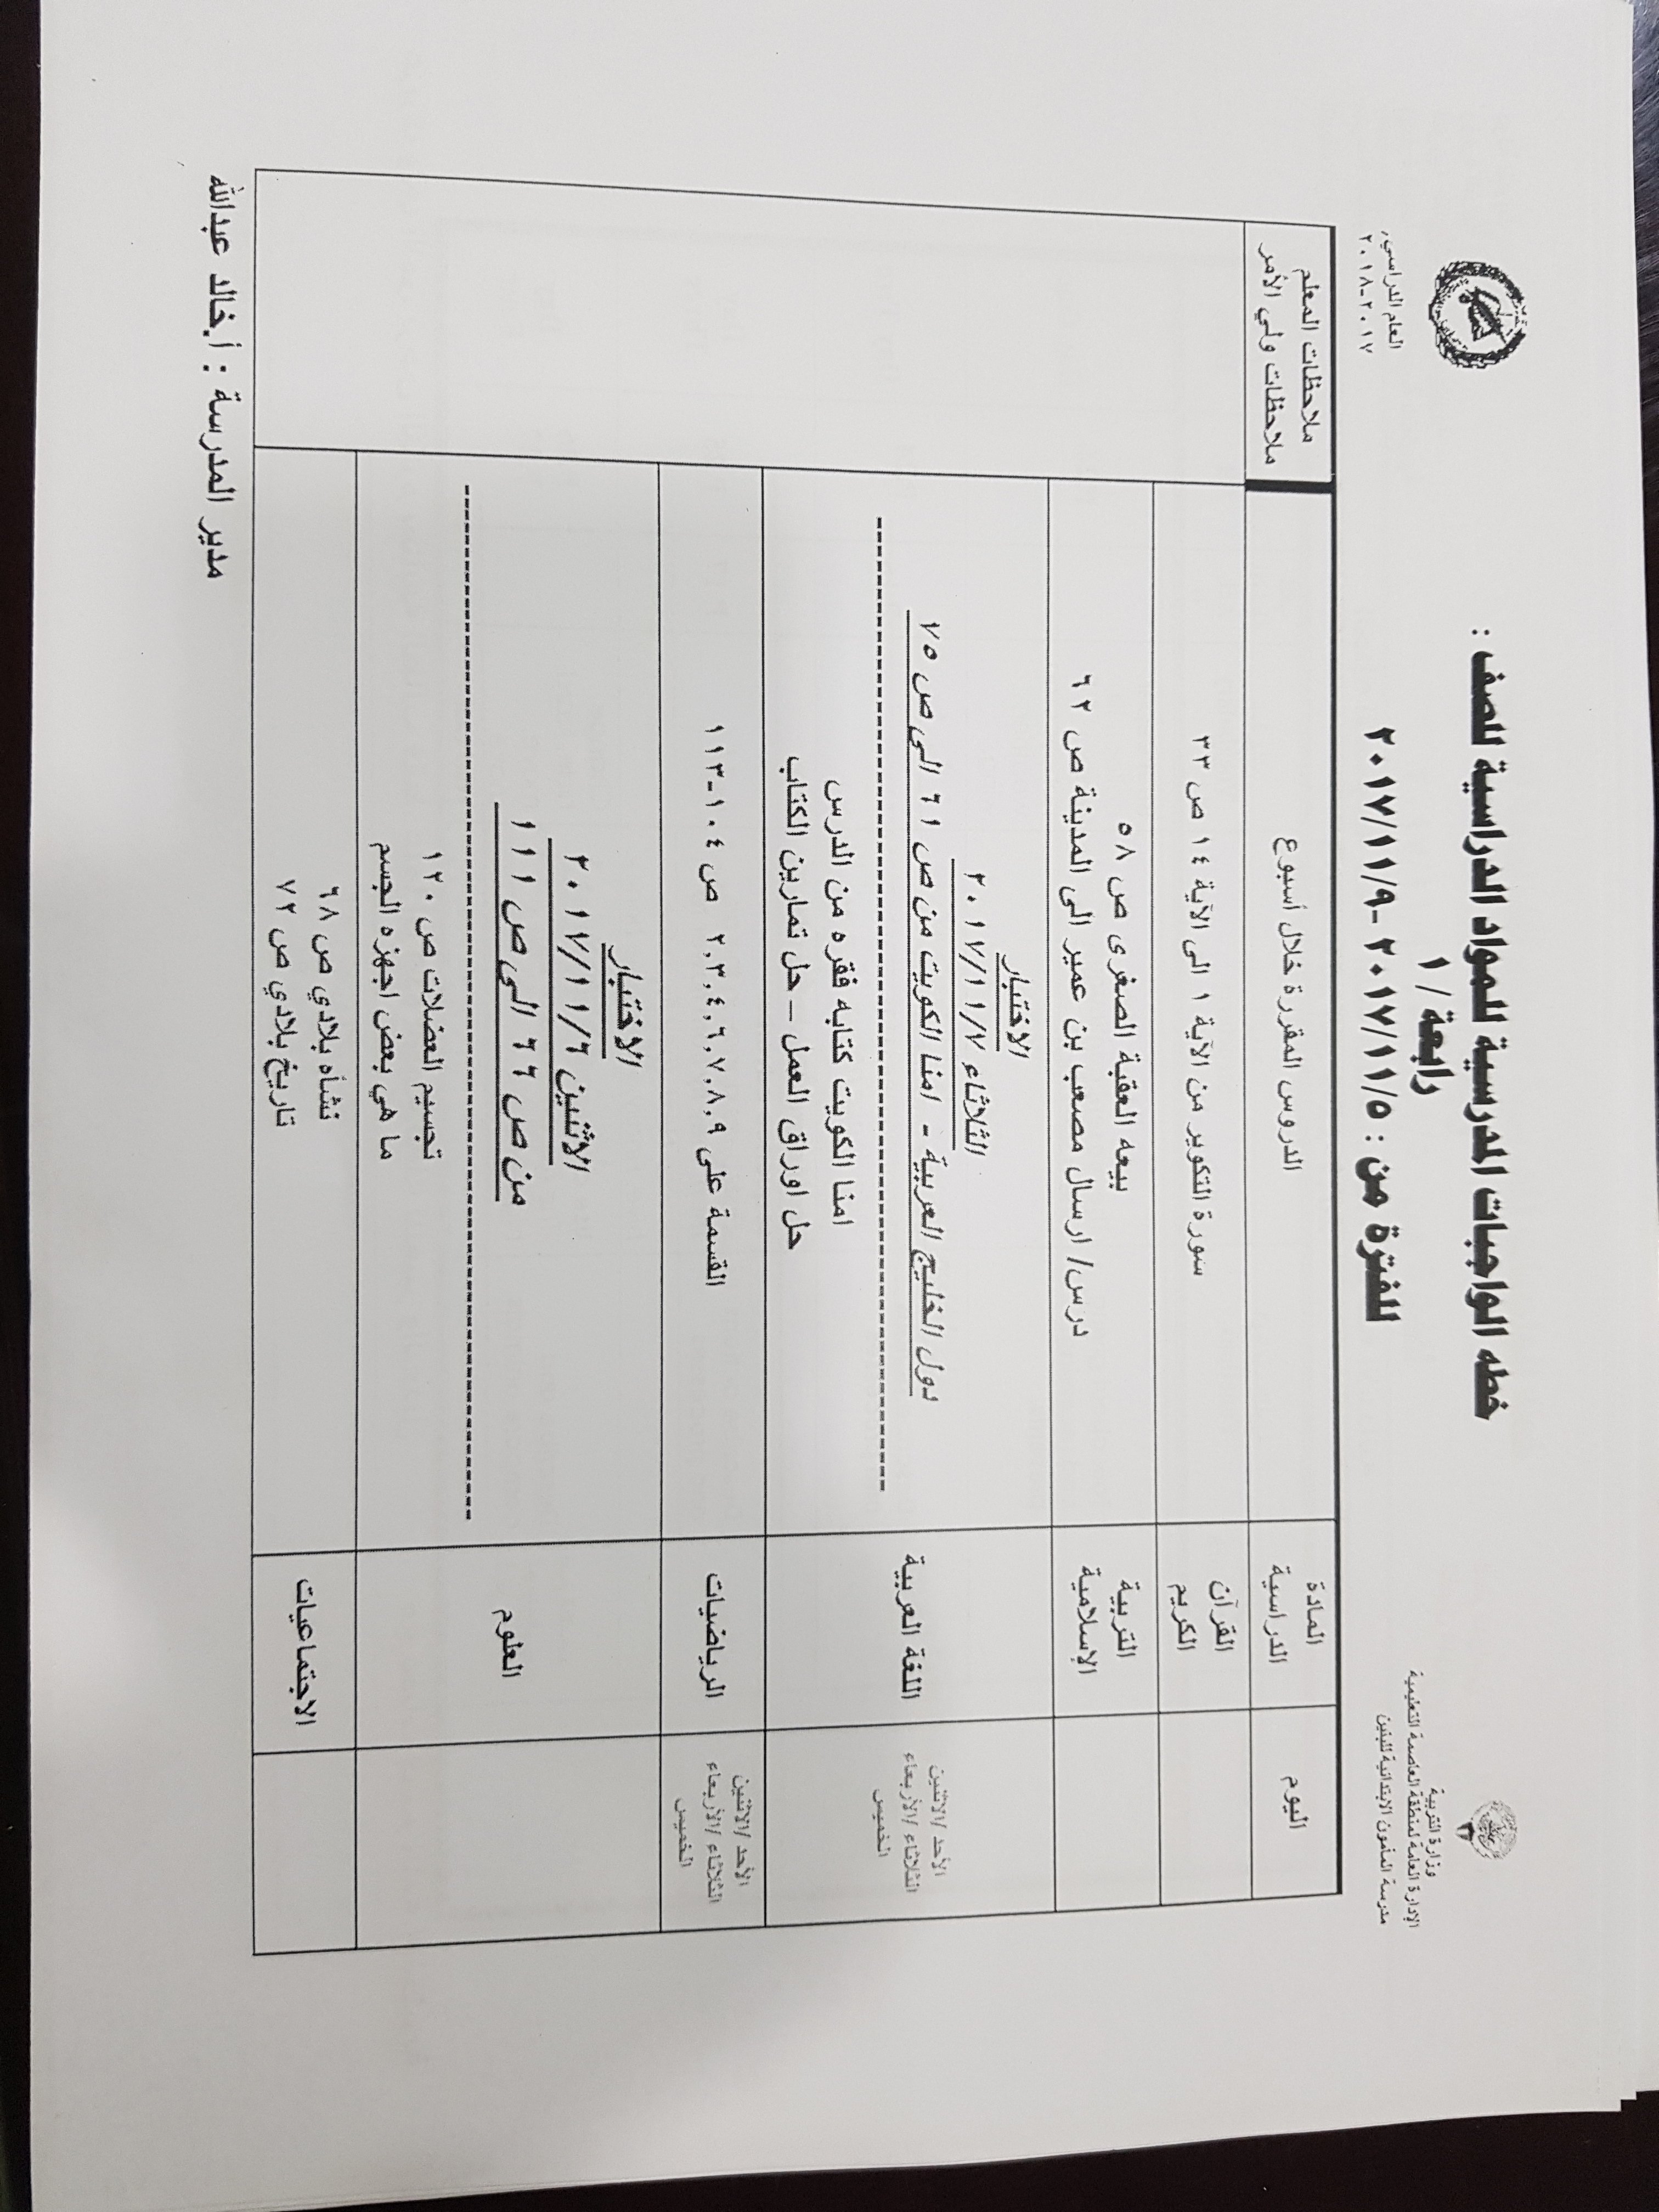 وزارة التربية
الإدارة العامة لمنطقة العاصمة التعليمية
مدرسة المأمون الابتدائية للبنين
خطه الواجبات المدرسية للمواد الدراسية للصف :
رابعة / ١
للفترة من : ٢٠١٧/١١/٥ -٢٠١٧/١١/٩
العام الدراسي,
٢٠١٧-٢٠١٨
اليوم
المادة
الدراسية
الدروس المقررة خلال أسبوع
ملاحظات المعلم
ملاحظات ولي الأمر
القرآن
الكريم
سورة التكوير من الآية ١ الى الآية ١٤ ص ٣٣
التربية
الإسلامية
بيعه العقبة الصغرى ص ٥٨
درس/ ارسال مصعب بن عمير الى المدينة ص ٦٢
الأحد /الاثنين
الثلاثاء /الأربعاء
الخميس
اللغة العربية
الاختبار
الثلاثاء ٢٠١٧/١١/٧
دول الخليج العربية - امنا الكويت من ص ٦١ الى ص ٧٥
امنا الكويت كتابه فقره من الدرس
حل اوراق العمل – حل تمارين الكتاب
الأحد /الاثنين
الثلاثاء /الأربعاء
الخميس
الرياضيات
القسمة على ٢,٣,٤,٦,٧,٨,٩ ص ١٠٤-١١٣
العلوم
الاختبار
الاثنين ٢٠١٧/١١/٦
من ص ٦٦ الى ص ١١١
تجسيم العضلات ص ١٢٠
ما هي بعض اجهزه الجسم
الاجتماعيات
نشأه بلادي ص ٦٨
تاريخ بلادي ص ٧٢
مدير المدرسة : أ.خالد عبدالله